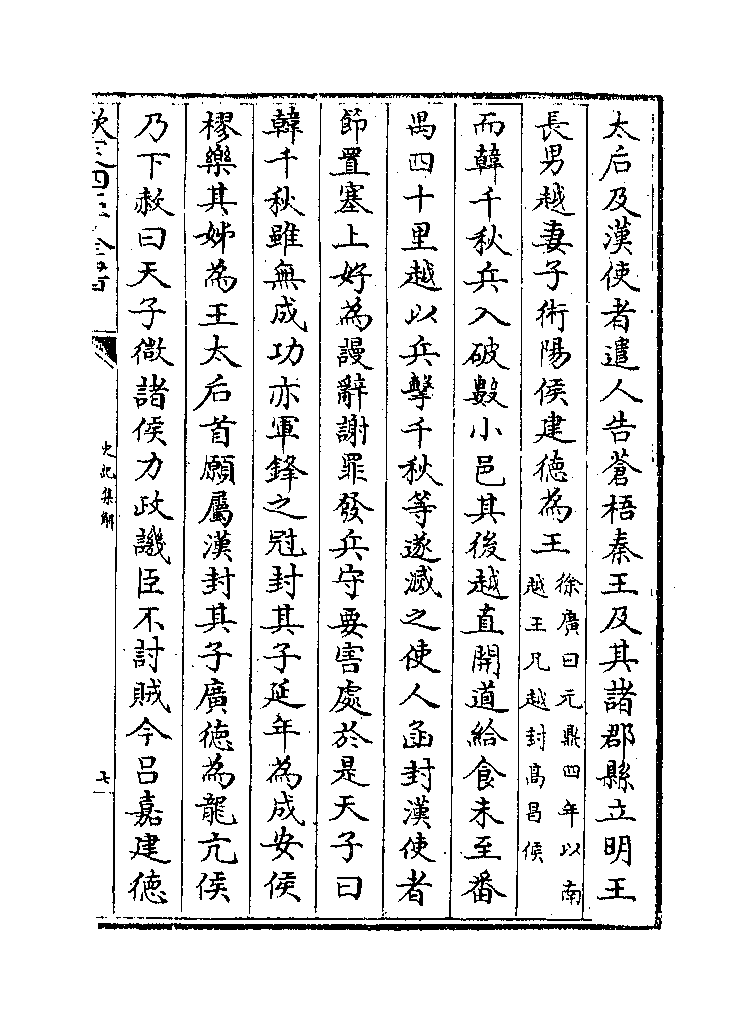 太后及漢使者遣人告蒼梧秦王及其諸郡縣立明王
長男越妻子術陽侯建徳為王徐廣曰元鼎四年以南越王兄越封髙昌侯
而韓千秋兵入破數小邑其後越直開道給食未至番
禺四十里越以兵擊千秋等遂滅之使人函封漢使者
節置塞上好為謾辭謝罪發兵守要害處於是天子曰
韓千秋雖無成功亦軍鋒之冠封其子延年為成安侯
樛樂其姊為王太后首願屬漢封其子廣徳為龍亢侯
乃下赦曰天子微諸侯力政譏臣不討賊今吕嘉建徳
欽定四庫全書
史記集解
七